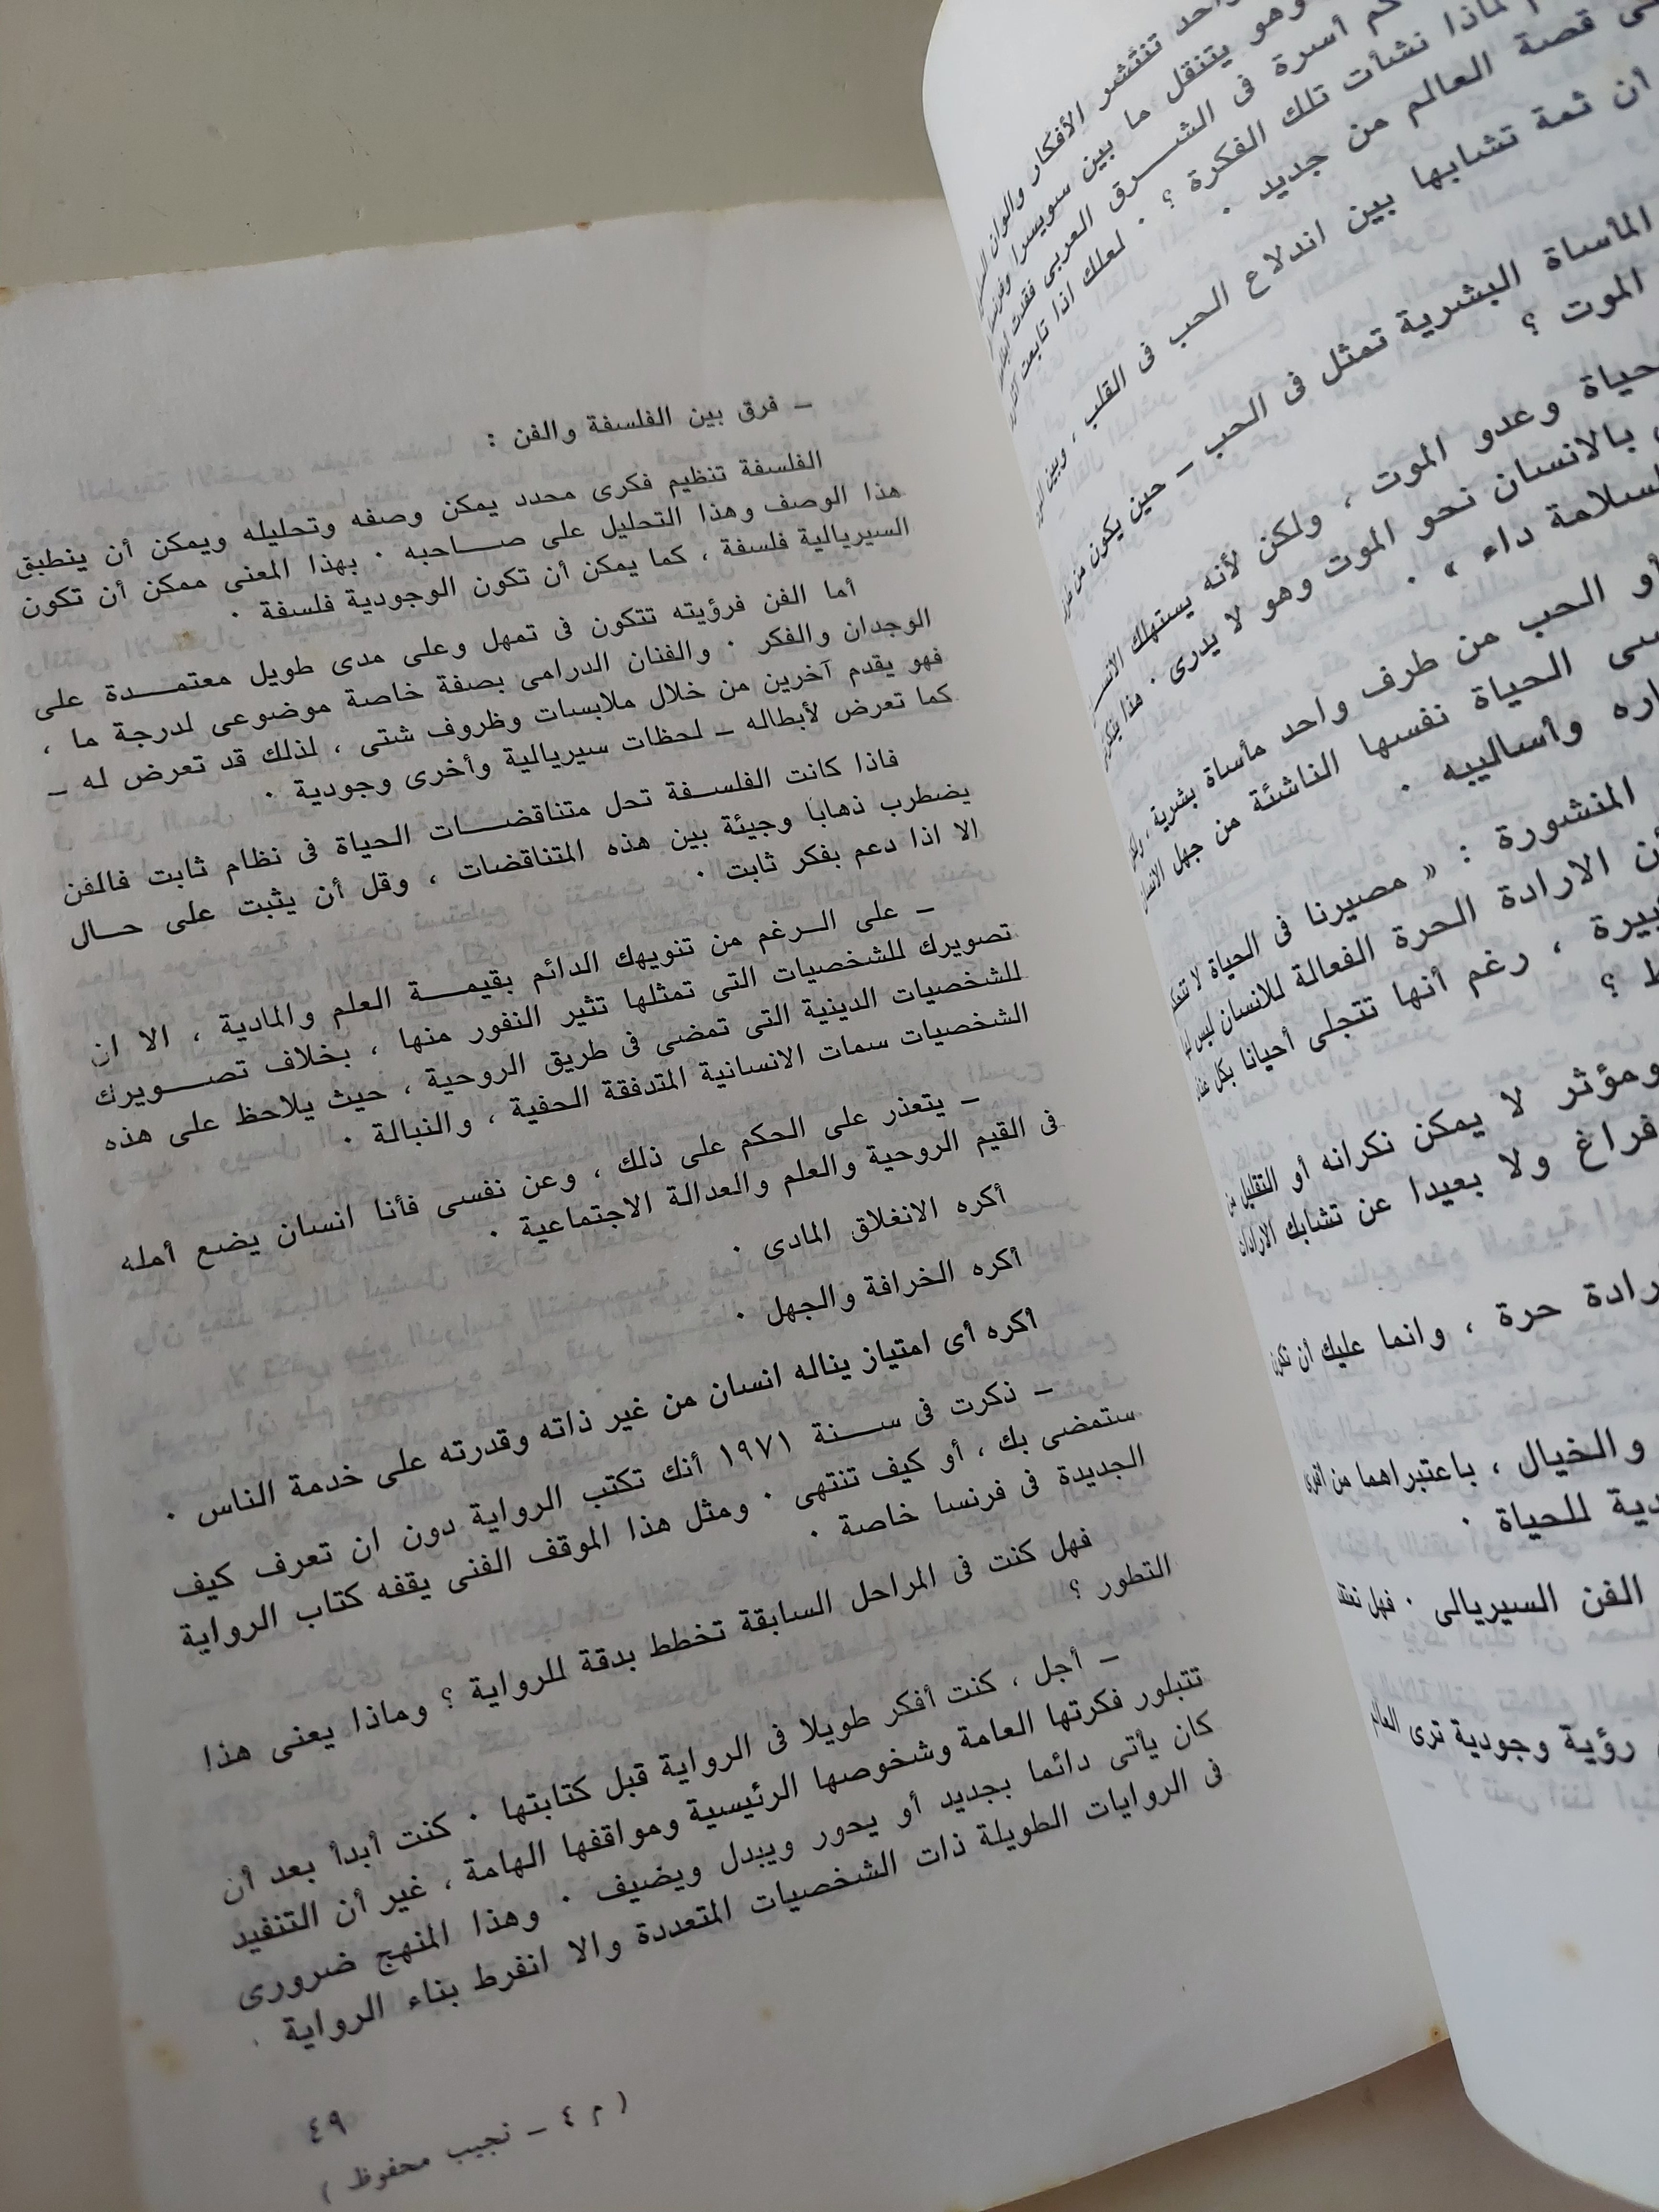 واحد تنتشر الأفكار والوان
وهو يتنقل ما بين سويسرا
كم أسرة فى الشـــرق العربى فقدت
لماذا نشأت تلك الفكرة ؟ . لعلك اذا تابعت
قصة العالم من جديد .
أن ثمة تشابها بين اندلاع الحب فى القلب ، وبين
المأساة البشرية تمثل فى الحب – حين يكون من
الموت ؟
وعدو الموت ، ولكن لأنه يستهلك
بالانسان نحو الموت وهو لا يدرى . هذا
داء » .
أو الحب من طرف واحد مأساة بشرية ،
الحياة نفسها الناشئة من جهل
وأساليبه .
المنشورة : « مصيرنا فى الحياة لا
الارادة الحرة الفعالة للانسان ليس
، رغم أنها تتجلى أحيانا بكل
؟
ومؤثر لا يمكن نكرانه أو التقليل من
فراغ ولا بعيدا عن تشابك الارادات
حرة ، وانما عليك أن تكون
والخيال ، باعتبراهما من
للحياة .
الفن السيريالى . فهل تعتقد
رؤية وجودية ترى العالم
– فرق بين الفلسفة والفن :
الفلسفة تنظيم فكرى محدد يمكن وصفه وتحليله ويمكن أن ينطبق
هذا الوصف وهذا التحليل على صـــاحبه . بهذا المعنى ممكن أن تكون
السيريالية فلسفة ، كما يمكن أن تكون الوجودية فلسفة .
أما الفن فرؤيته تتكون فى تمهل وعلى مدى طويل معتمـــدة على
الوجدان والفكر . والفنان الدرامى بصفة خاصة موضوعى لدرجة ما ،
فهو يقدم آخرين من خلال ملابسات وظروف شتى ، لذلك قد تعرض له –
كما تعرض لأبطاله – لحظات سيريالية وأخرى وجودية .
فاذا كانت الفلســفة تحل متناقضـــات الحياة فى نظام ثابت فالمفن
يضطرب ذهابا وجيئة بين هذه المتناقضات ، وقل أن يثبت على حـــال
الا اذا دعم بفكر ثابت .
– على الــرغم من تنويهك الدائم بقيمـــة العلم والمادية ، الا ان
تصويرك للشخصيات التى تمثلها تثير النفور منها ، بخلاف تصـــويرك
للشخصيات الدينية التى تمضى فى طريق الروحية ، حيث يلاحظ على هذه
الشخصيات سمات الانسانية المتدفقة الحفية ، والنبالة .
– يتعذر على الحكم على ذلك ، وعن نفسى فأنا انسان يضع أمله
فى القيم الروحية والعلم والعدالة الاجتماعية .
أكره الانغلاق المادى .
أكره الخرافة والجهل .
أكره أى امتياز يناله انسان من غير ذاته وقدرته على خدمة الناس .
– ذكرت فى ســـنة ١٩٧١ أنك تكتب الرواية دون ان تعرف كيف
ستمضى بك ، أو كيف تنتهى . ومثل هذا الموقف الفنى يقفه كتاب الرواية
الجديدة فى فرنسا خاصة .
فهل كنت فى المراحل السابقة تخطط بدقة للرواية ؟ وماذا يعنى هذا
التطور ؟
– أجل ، كنت أفكر طويلا فى الرواية قبل كتابتها . كنت أبدأ بعد أن
تتبلور فكرتها العامة وشخوصها الرئيسية ومواقفها الهامة ، غير أن التنفيد
كان يأتى دائما بجديد أو يحور ويبدل ويضيف . وهذا المنهج ضرورى
فى الروايات الطويلة ذات الشخصيات المتعددة والا انفرط بناء الرواية .
٤٩
( م ٤ – نجيب محفوظ )